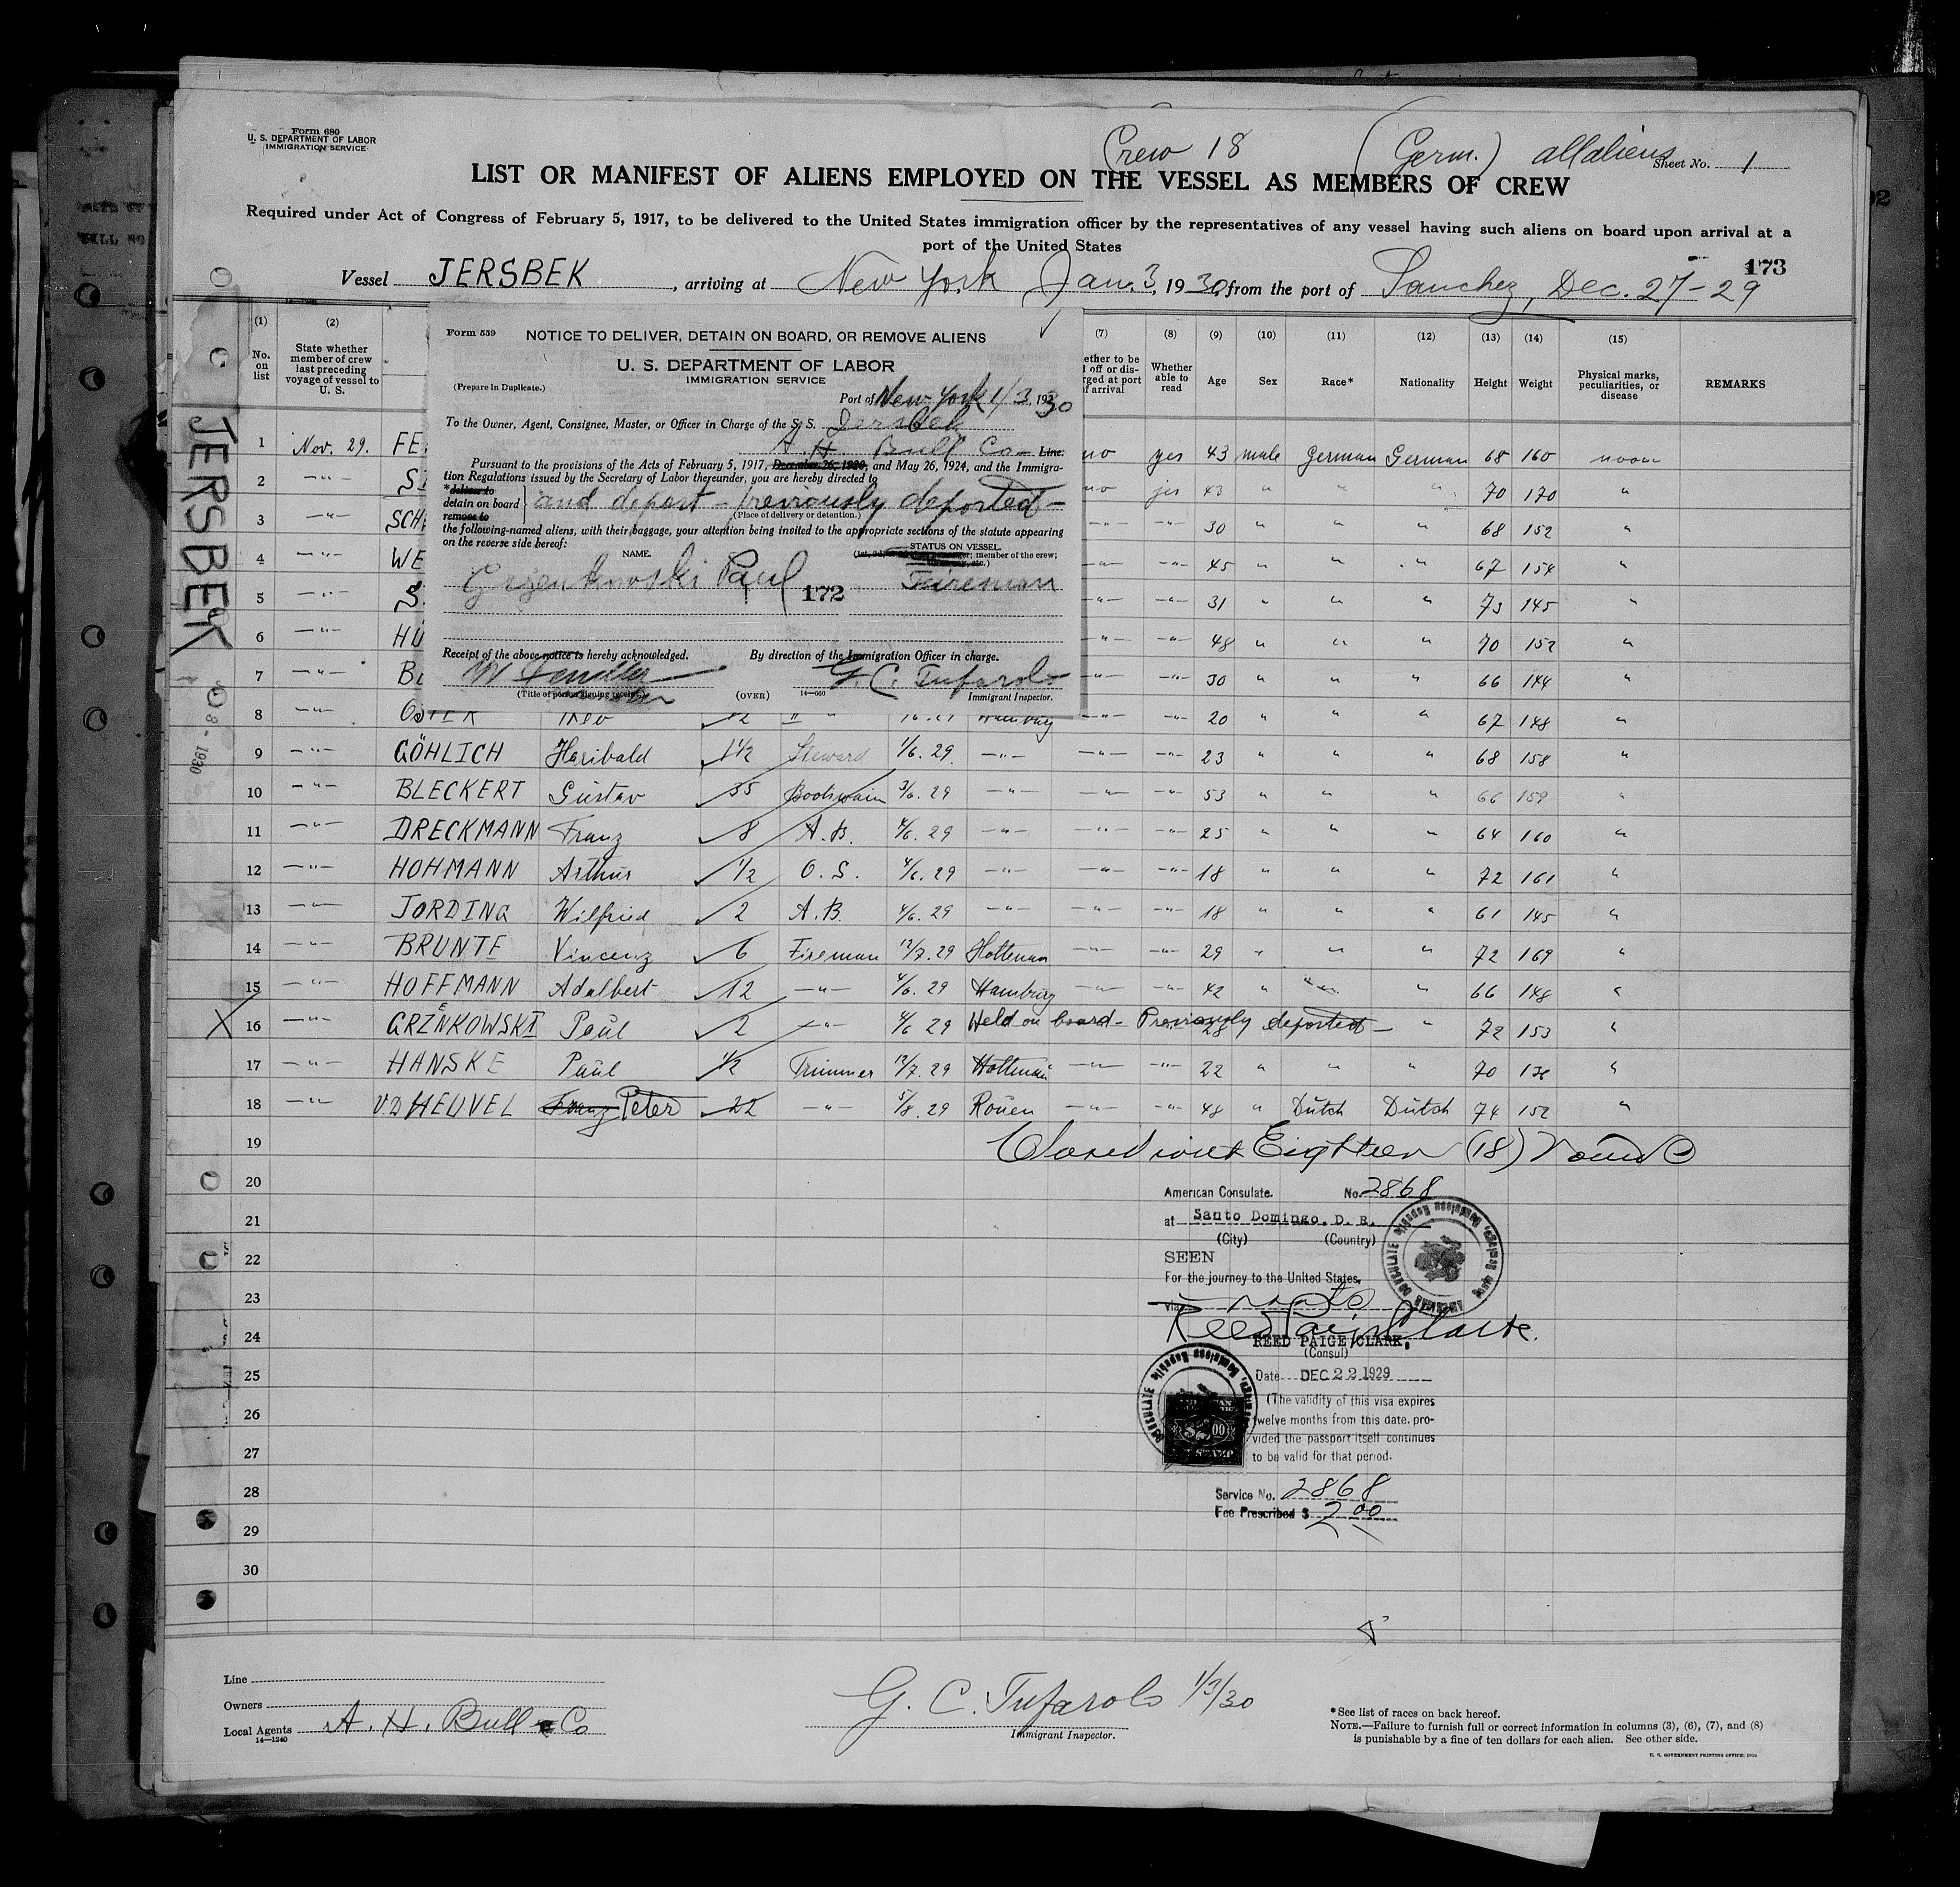 Form 680
U. S. DEPARTMENT OF LABOR
IMMIGRATION SERVICE
Crew 18 (Germ.) all aliens
Sheet No. 1
LIST OR MANIFEST OF ALIENS EMPLOYED ON THE VESSEL AS MEMBERS OF CREW
Required under Act of Congress of February 5, 1917, to be delivered to the United States immigration officer by the representatives of any vessel having such aliens on board upon arrival at a
port of the United States
173
Vessel JERSBEK, arriving at New York Jan. 3, 1930, from the port of Sanchez, Dec. 27-29
(1) (2) (7) (8) (9) (10) (11) (12) (13) (14) (15)
No. on list
State whether member of crew last preceding voyage of vessel to U. S.
ether to be
d off or dis-
rged at port
f arrival
Whether able to read
Age
Sex
Race*
Nationality
Height
Weight
Physical marks, peculiarities, or disease
REMARKS
Form 559
NOTICE TO DELIVER, DETAIN ON BOARD, OR REMOVE ALIENS
U. S. DEPARTMENT OF LABOR
IMMIGRATION SERVICE
(Prepare in Duplicate.)
Port of New York 1/3, 1930
To the Owner, Agent, Consignee, Master, or Officer in Charge of the S. S. Jersbek
A. H. Bull Co. Line.
Pursuant to the provisions of the Acts of February 5, 1917, December 26, 1920, and May 26, 1924, and the Immigra-
tion Regulations issued by the Secretary of Labor thereunder, you are hereby directed to
*deliver to
detain on board } and deport - previously deported -
remove to
(Place of delivery or detention.)
the following-named aliens, with their baggage, your attention being invited to the appropriate sections of the statute appearing
on the reverse side hereof:
NAME.
STATUS ON VESSEL.
member of the crew;
etc.)
Grzenkowski Paul 172 Fireman
Receipt of the above notice is hereby acknowledged.
By direction of the Immigration Officer in charge.
G. C. Tufarolo
(Title of person signing receipt.)
(OVER)
14—660
Immigrant Inspector.
1 Nov. 29. FE no yes 43 male German German 68 160
2 —"— no yes 43 " " " 70 170 "
3 —"— SCH —"— —"— 30 " " " 68 152 "
4 —"— WE —"— —"— 45 " " " 67 154 "
5 —"— S —"— —"— 31 " " " 73 145 "
6 —"— HÜ —"— —"— 48 " " " 70 152 "
7 —"— —"— —"— 30 " " " 66 144 "
8 —"— Hamburg —"— —"— 20 " " " 67 148 "
9 —"— GÖHLICH Haribald 1½ Steward 1/6. 29. —"— —"— —"— 23 " " " 68 158 "
10 —"— BLECKERT Gustav 35 Bootswain 3/6. 29 —"— —"— —"— 53 " " " 66 159 "
11 —"— DRECKMANN Franz 8 A. B. 4/6. 29 —"— —"— —"— 25 " " " 64 160 "
12 —"— HOHMANN Arthur 1/2 O. S. 4/6. 29 —"— —"— —"— 18 " " " 72 161 "
13 —"— JORDING Wilfried 2 A. B. 4/6. 29 —"— —"— —"— 18 " " " 61 145 "
14 —"— BRUNTE Vincenz 6 Fireman 12/7. 29 Holtenau —"— —"— 29 " " " 72 169 "
15 —"— HOFFMANN Adalbert 12 —"— 4/6. 29 Hamburg —"— —"— 42 " " " 66 148 "
X 16 —"— GRZENKOWSKI Paul 2 —"— 4/6 29 Held on board - Previously deported - 28 " 72 153 "
17 —"— HANSKE Paul 1/2 Trimmer 12/7. 29 Holtenau —"— —"— 22 " " " 70 "
18 —"— V.D HEUVEL Franz Peter 22 —"— 5/8. 29 Rouen —"— —"— 48 " Dutch Dutch 74 152 "
19
Eighteen (18)
20
21
22
23
24
25
26
27
28
29
30
American Consulate. No. 2868
at Santo Domingo, D. R.
(City) (Country)
SEEN
For the journey to the United States,
via
Reed Paige Clark.
REED PAIGE CLARK,
(Consul)
Date DEC 22 1929
(The validity of this visa expires
twelve months from this date, pro-
vided the passport itself continues
to be valid for that period.
Service No. 2868
Fee Prescribed $ 2.00
JERSBEK
8 - 1930
Line
Owners
Local Agents A. H. Bull & Co
14—1240
G. C. Tufarolo 1/3/30
Immigrant Inspector.
* See list of races on back hereof.
NOTE.—Failure to furnish full or correct information in columns (3), (6), (7), and (8)
is punishable by a fine of ten dollars for each alien. See other side.